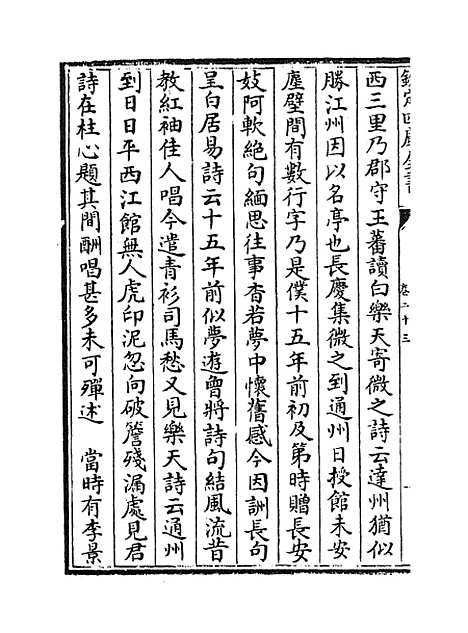 欽定四庫全書
卷二十三
西三里乃郡守王蕃讀白樂天寄微之詩云達州猶似
勝江州因以名亭也長慶集微之到通州日授館未安
塵壁間有數行字乃是僕十五年前初及第時贈長安
妓阿軟絶句緬思往事杳若夢中懷舊感今因詶長句
呈白居易詩云十五年前似夢遊曾將詩句結風流昔
教紅袖佳人唱今遣青衫司馬愁又見樂天詩云通州
到日日平西江館無人虎印泥忽向破簷殘漏處見君
詩在柱心題其間酬唱甚多未可殫述　當時有李景